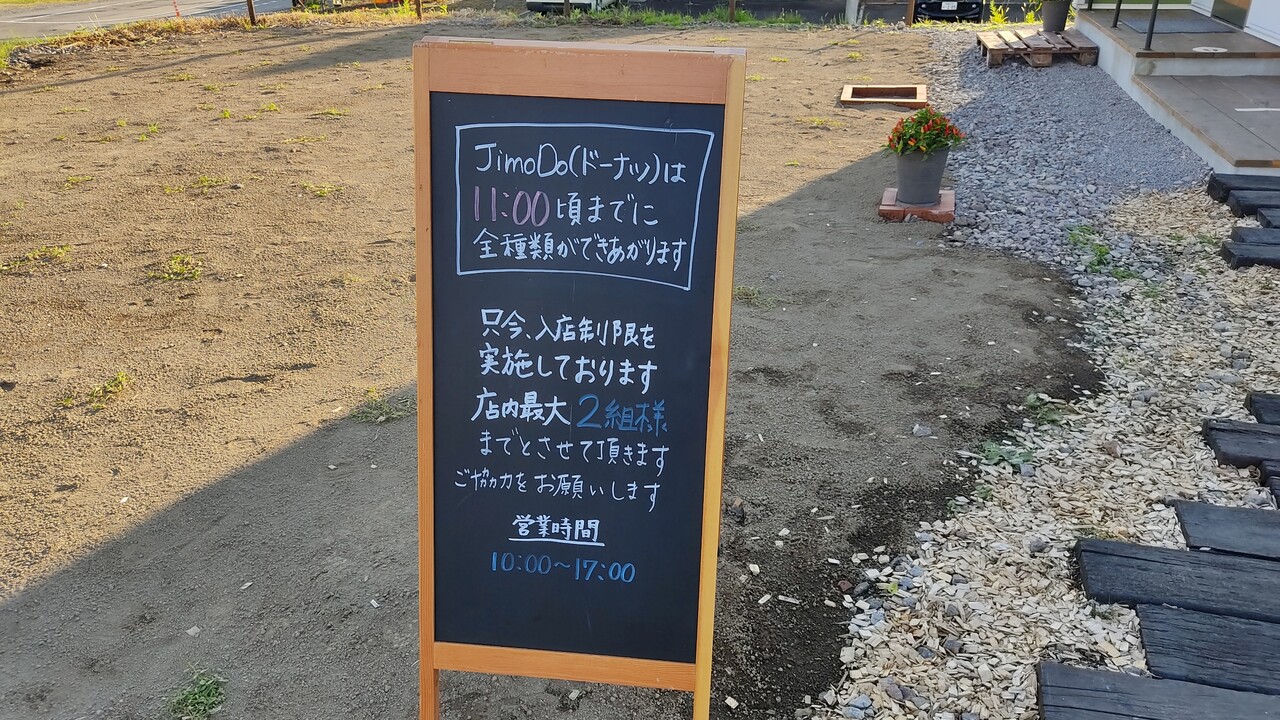 JimoDo(ドーナツ)は
11:00頃までに
全種類ができあがります
只今、入店制限を
実施しております
店内最大2組様
までとさせて頂きます
ご協力をお願いします
営業時間
10:00~17:00